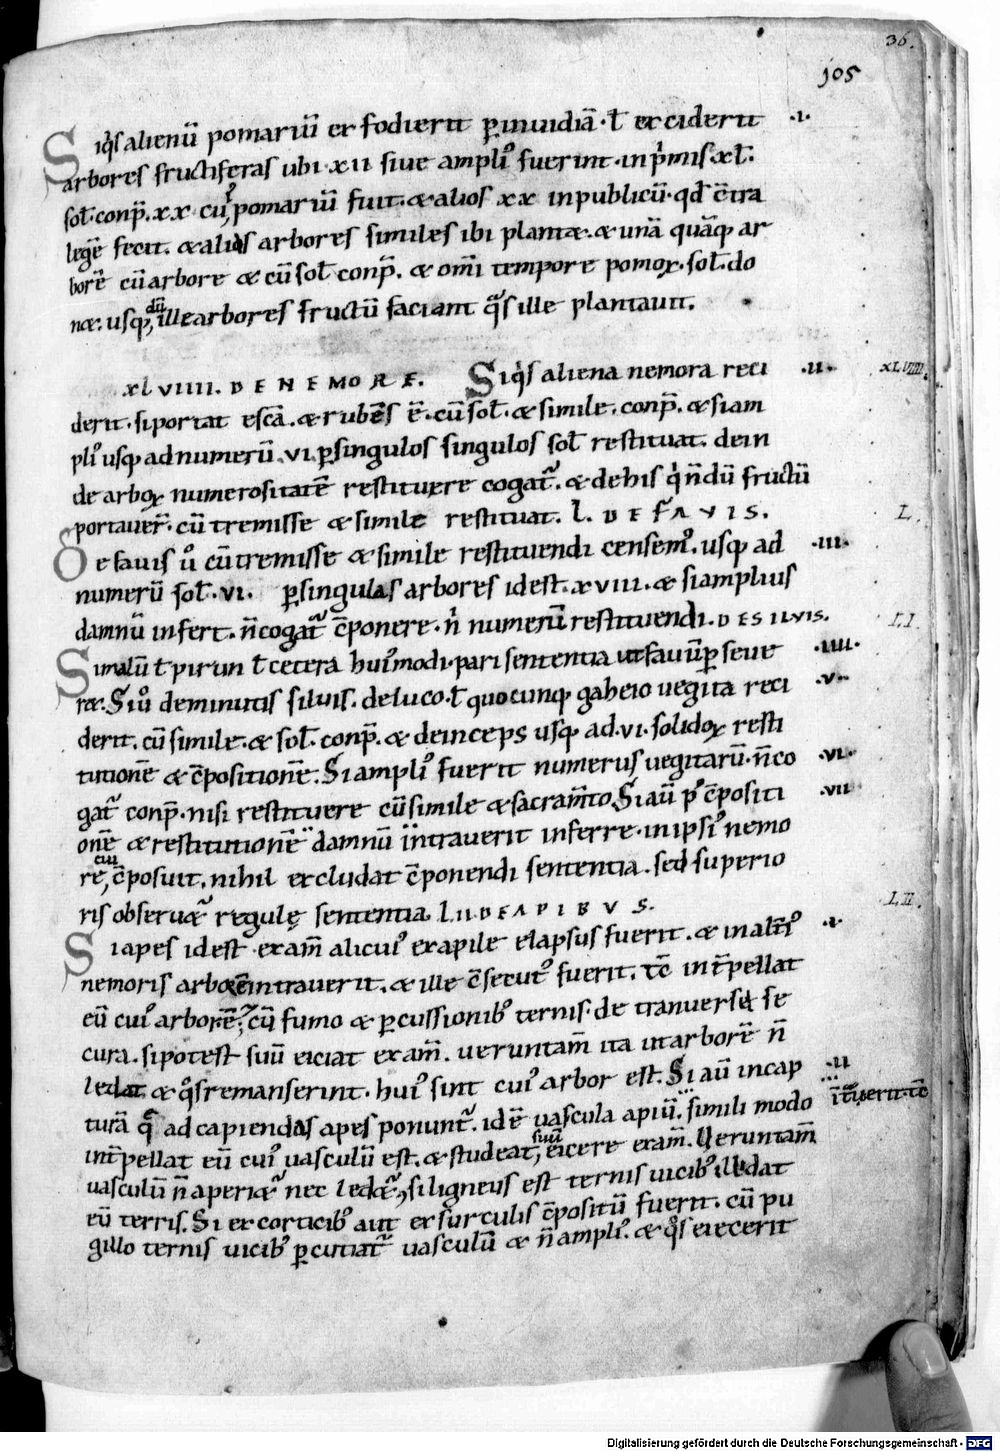 36.
105
Siq̇s alienū pomariū exfodierit p̱ inuidiā · ł exciderit ·i·
arbores fructiferas ubi · xii siue ampli᷒ fuerint · in p̍mis · xł ·
soł · conp̄ · xx cui᷒ pomariū fuit · & alios xx in publicū · qđ c̄tra
legē fecit · & alias arbores similes ibi plantæ · & unā quāq; ar
borē cū arbore & cū soł conp̄ · & om̄i tempore pomoꝝ · soł · do
næ · usq; dū ille arbores fructū faciant q̄s ille plantauit ·
xlviiii · DE NEMORE · Siq̇s aliena nemora reci ·ii· XLVIIII
derit · si portat escā · & rubēs ē · cū soł · & simile · conp̄ · & si am
pli᷒ usq; ad numerū · vi · p̱ singulos singulos soł restituat · dein
de arboꝝ numerositatē restituere cogat᷒ · & de his q̍ n̄dū fructū
portauer̄ · cū tremisse & simile restituat · L · DE FAVIS · L
De fauis u̓ cū tremisse & simile restituendi censem᷒ · usq; ad ·iii·
numerū soł · vi · p̱ singulas arbores id est · xviii · & si amplius
damnū infert · n̄ cogat᷒ c̄ponere · n̍ numerū restituendi · DE SILVIS · LI
Si malū ł pirun ł cetera hui᷒ modi · pari sententia ut fauū p̱ seue ·iiii·
ræ · Si u̓ de minutis siluis · de luco · ł quocunq; gaheio uegita reci ·v·
derit · cū simile · & soł · conp̄ · & deinceps usq; ad · vi · solidoꝝ resti
tutionē & c̄positionē · Si ampli᷒ fuerit numerus uegitarū · n̄ co ·vi·
gat᷒ conp̄ · nisi restituere cū simile & sacram̄to · Si aū p᷒ c̄positi ·vii
onē & restitutionē damnū intrauerit inferre · in ipsi᷒ nemo
re, cui c̄posuit · nihil excludat c̄ponendi sententia · sed superio
ris obseruæ᷒ regulę sententia · LII · DE APIBVS · LII
Si apes id est exam̄ alicui᷒ ex apile elapsus fuerit · & in alt̄i᷒ ·i·
nemoris arborē intrauerit · & ille c̄secut᷒ fuerit · tc̄ int̄pellat
eū cui᷒ arborē ; & cū fumo & p̱cussionib᷒ ternis · de tranuersę se
cura · si potest suū eiciat exam̄ · ueruntam̄ ita ut arborē n̄
ledat & q̊s remanserint · hui᷒ sint cui᷒ arbor est · Si aū in cap ·ii
turā q̄ ad capiendas apes ponunt᷒ · id ē uascula apiū · simili modo int᷒uerit · tc̄
int̄pellat eū cui᷒ uasculū est · & studeat suū eicere exam̄ · Ueruntam̄
uasculū n̄ aperiæ᷒ nec ledæ᷒, si ligneus est ternis uicib᷒ illidat
eū terris · Si ex corticib᷒ aut ex surculis c̄positū fuerit · cū pu
gillo ternis uicib᷒ p̱cutiat᷒ uasculū & n̄ ampli᷒ · & q̊s eiecerit
Digitalisierung gefördert durch die Deutsche Forschungsgemeinschaft - DFG